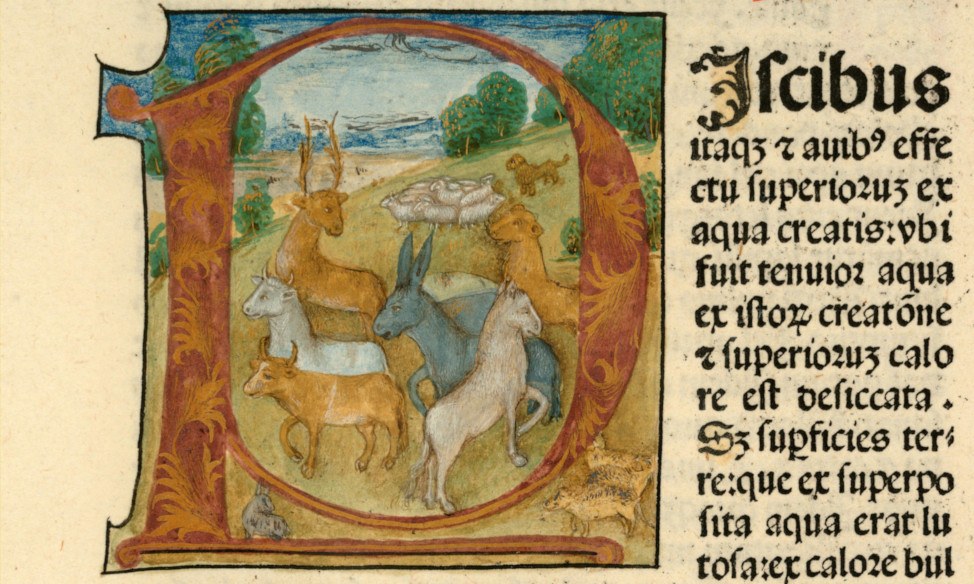 PIſcibus
itaqꝫ ⁊ auibꝰ effe
ctu ſuperioꝛuꝫ ex
aqua creatis:vbi
fuit tenuioꝛ aqua
ex iſtoꝝ creatōne
⁊ ſuperioꝛuꝫ calo
re eſt deſiccata .
Sꝫ ſuꝑficies ter⸗
re:que ex ſuperpo
ſita aqua erat lu
toſa:ex caloꝛe bul